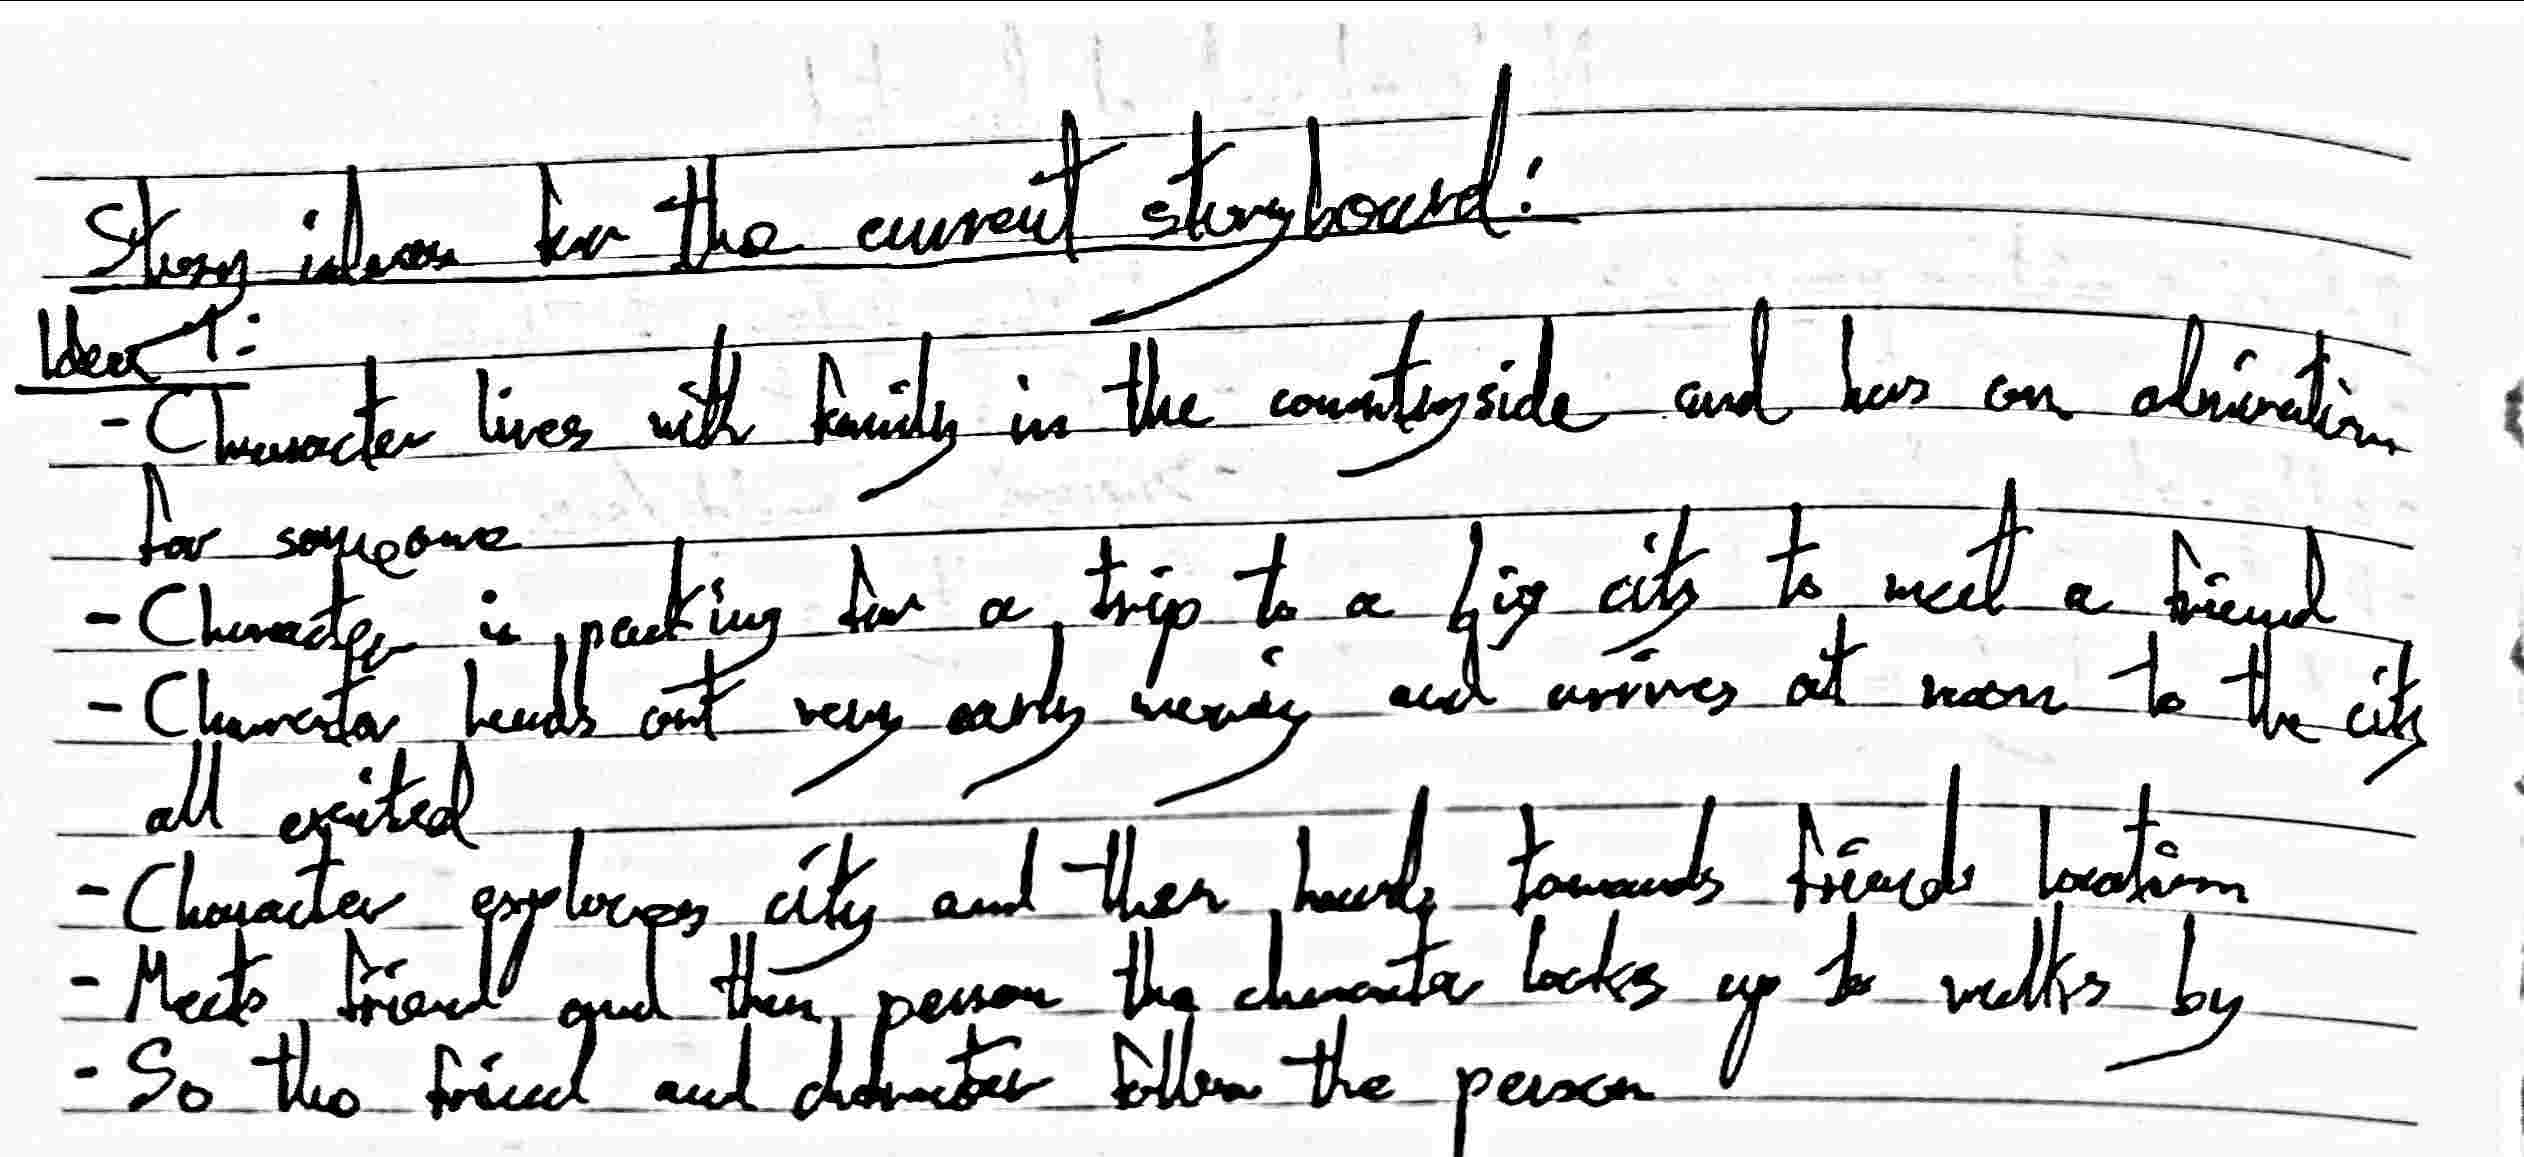 Story ideas for the current storyboard:
Idea 1:
- Character lives with family in the countryside and has an admiration
for someone
- Character is packing for a trip to a big city to meet a friend
- Character heads out very early morning and arrives at noon to the city
all excited
- Character explores city and then heads towards friends location
- Meets friend and then person the character looks up to walks by
- So the friend and character follow the person